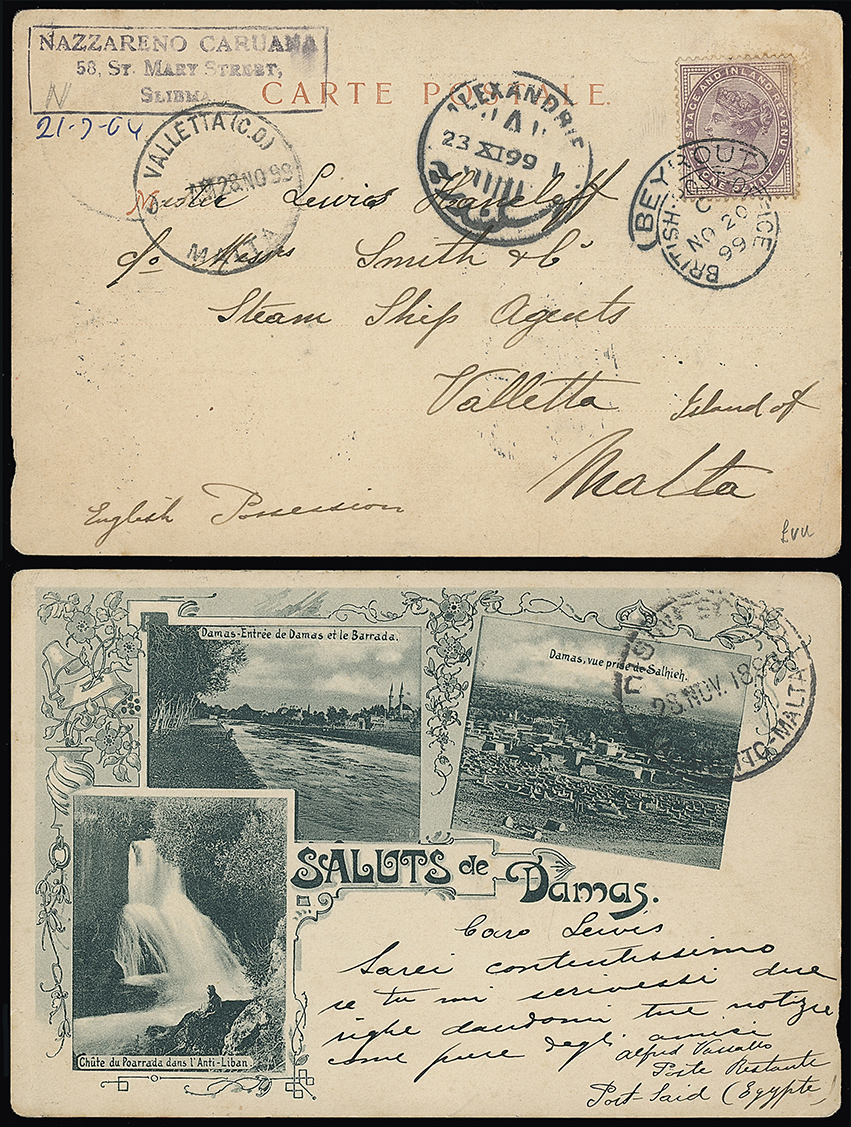 NAZZARENO CARUANA
58, ST. MARY STREET,
SLIEMA
N
21-9-04
CARTE POSTALE.
VALLETTA (C.O)
28 NO 99
MALTA
ALEXANDRIE
23 XI 99
POSTAGE AND INLAND REVENUE
ONE PENNY
BEYROUT
BRITISH OFFICE
C
NO 20
99
Lewis
c/o Messrs Smith & Co
Steam Ship Agents
Valletta Island of
Malta
English Possession
Damas-Entrée de Damas et le Barrada.
Damas, vue prise de Salhieh.
28 NOV. 18
MALTA
Chûte du Poarrada dans l'Anti-Liban
SALUTS de Damas.
Caro Lewis
Sarei contentissimo
se tu mi scrivessi due
righe dandomi tue notizie
come pure degli amici
Alfred Vassallo
Poste Restante
Port-Said (Egypte)